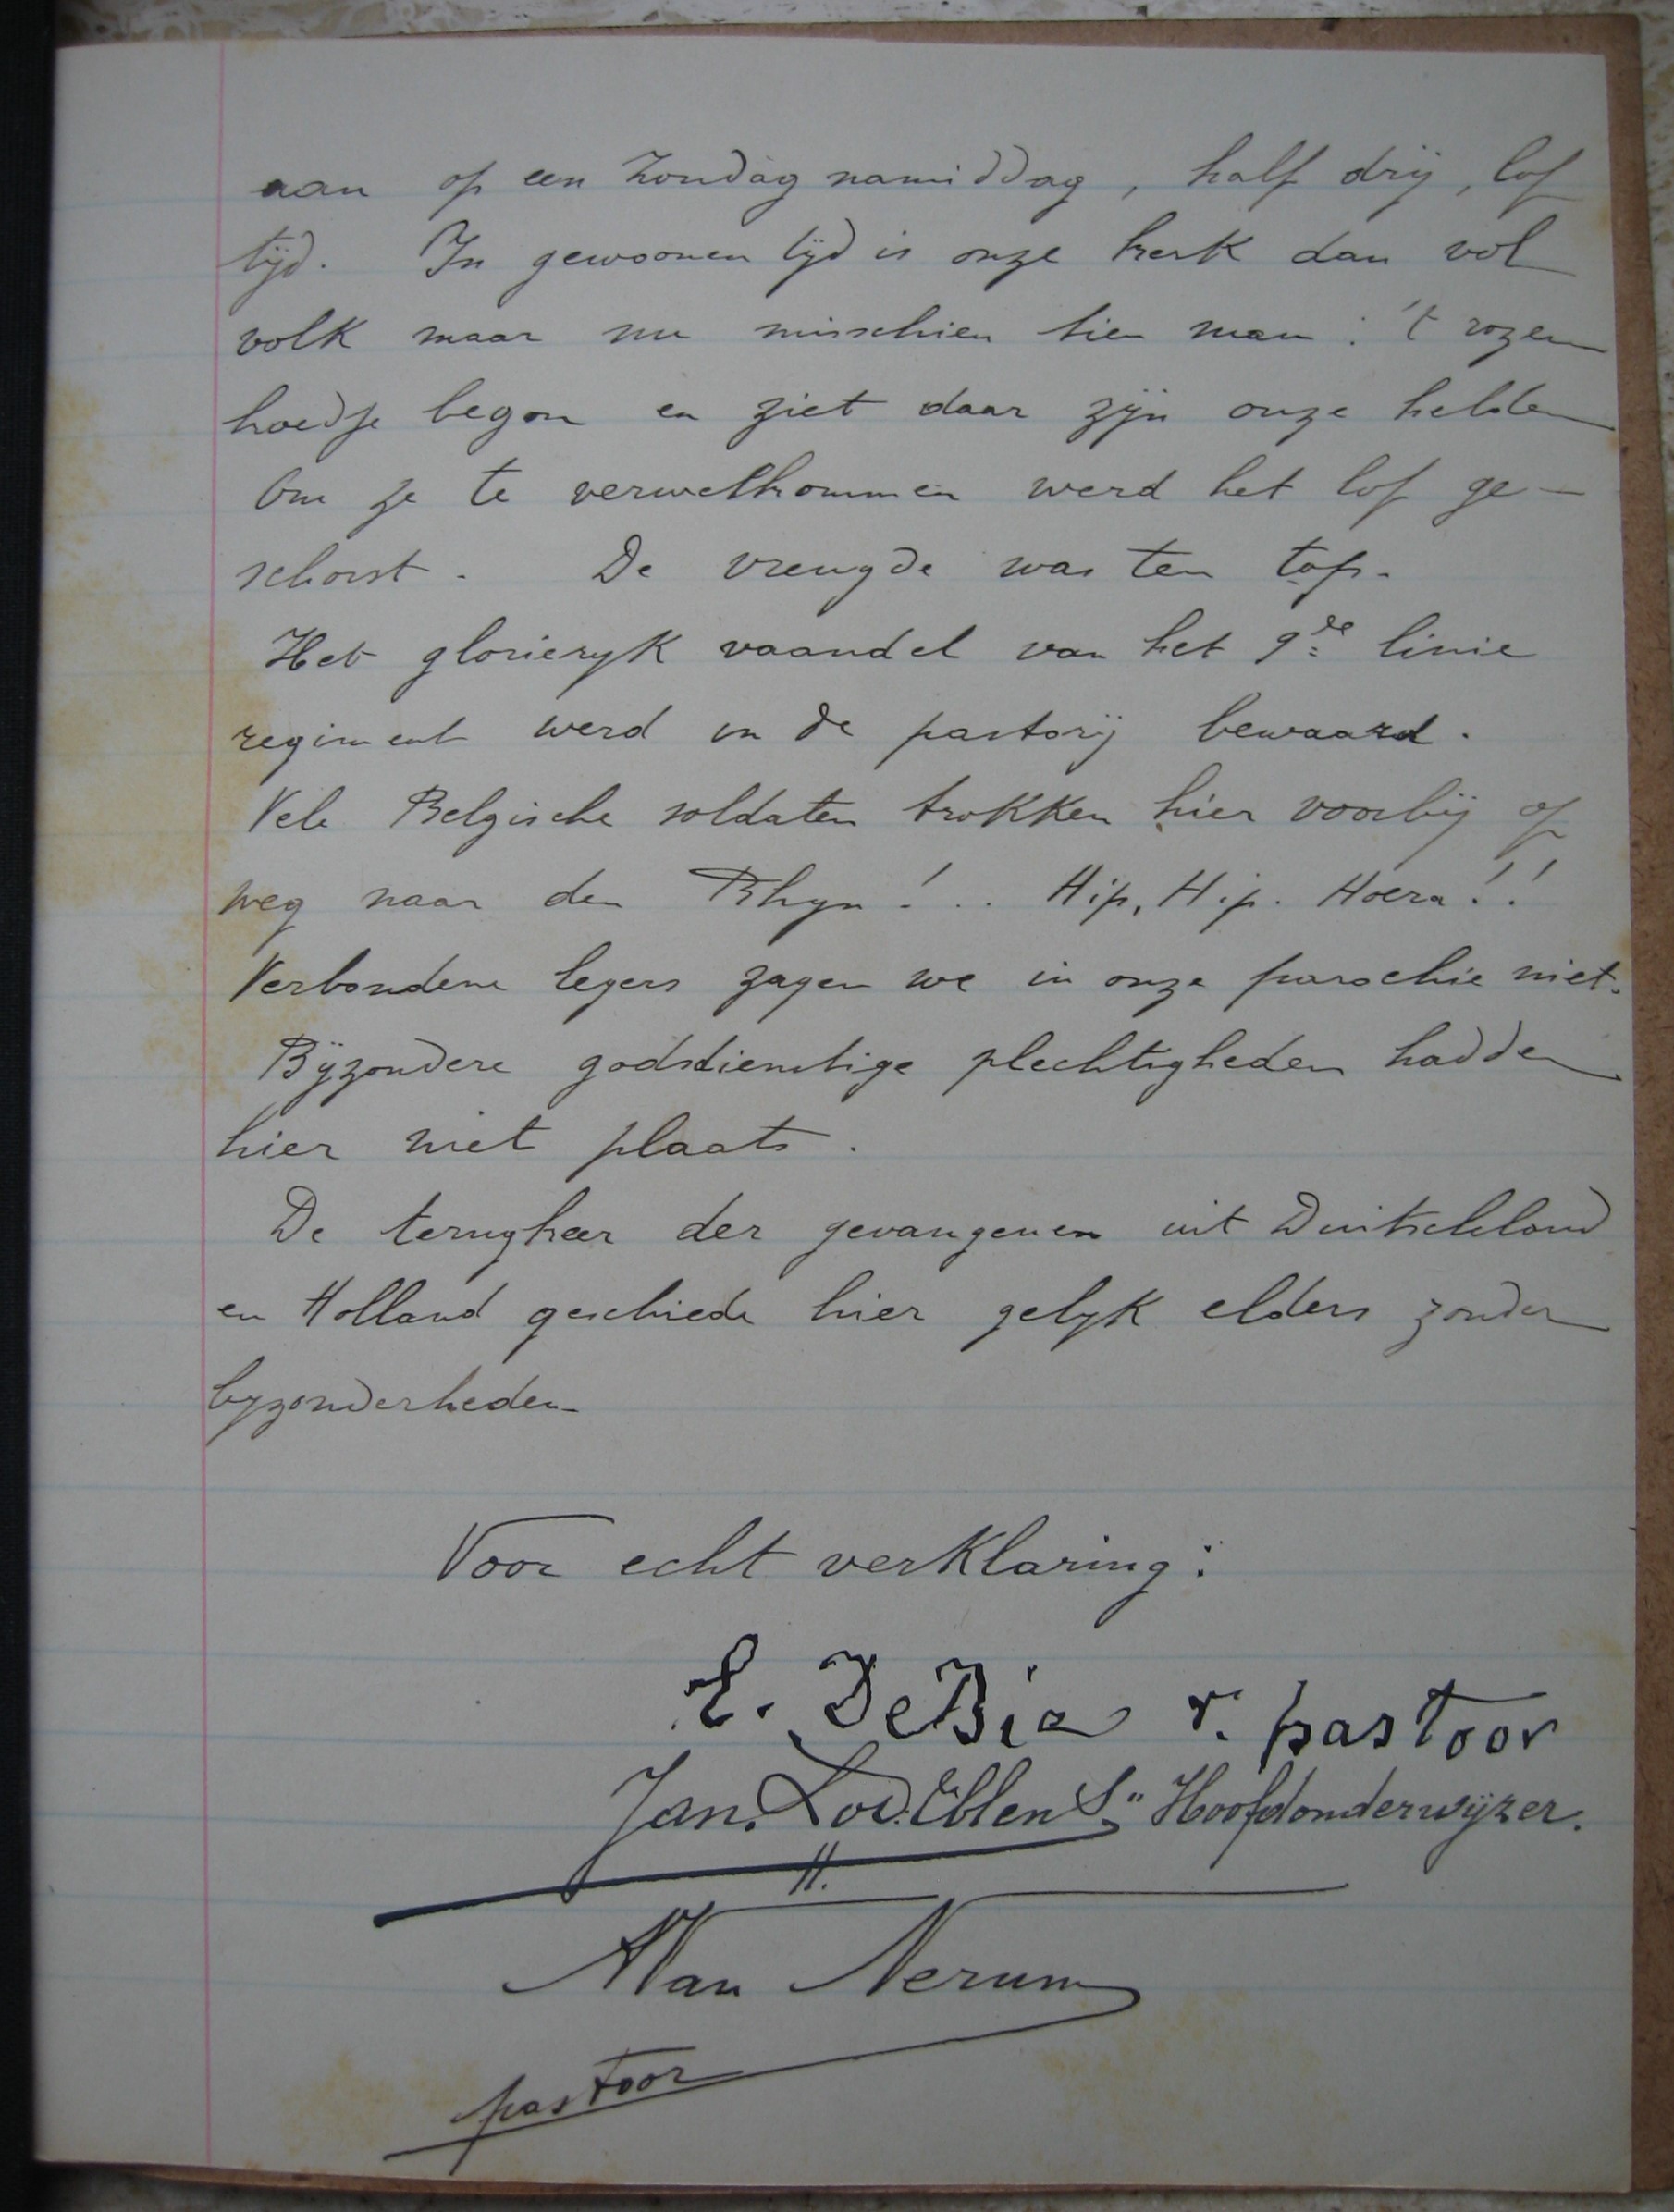 aan op een Zondag namiddag, half drij, lof
tijd. In gewoonen tijd is onze kerk dan vol
volk maar nu misschien tien man : 't rozen
hoedje begon en ziet daar zijn onze helden
Om ze te verwelkommen werd het lof ge-
schorst. De vreugde was ten top.
Het glorieryk vaandel van het 9de linie
regiment werd in de pastorij bewaard.
Vele Belgische soldaten trokken hier voorbij op
weg naar den Rhyn!.. Hip, Hip. Hoera!!
Verbondene legers zagen we in onze parochie niet.
Bijzondere godsdienstige plechtigheden hadden
hier niet plaats.
De terugkeer der gevangenen uit Duitschland
en Holland geschiede hier gelyk elders zonder
byzonderheden.
Voor echt verklaring:
E. DeBie r. pastoor
Jan. Lod. Hoofdonderwijzer.
Van Nerum
pastoor